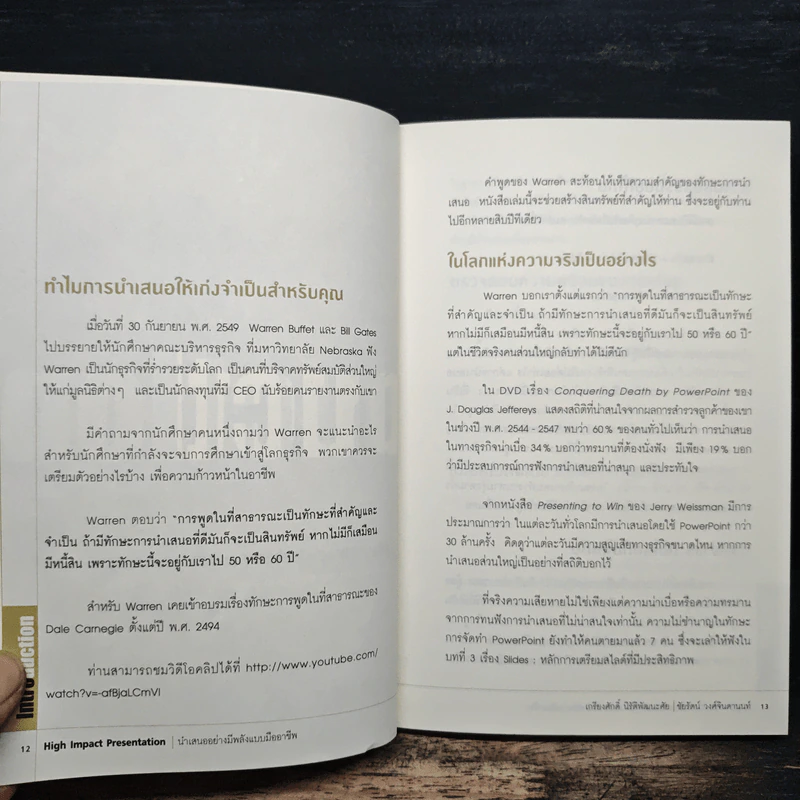 ทำไมการนำเสนอให้เก่งจำเป็นสำหรับคุณ
เมื่อวันที่ 30 กันยายน พ.ศ. 2549 Warren Buffet และ Bill Gates
ไปบรรยายให้นักศึกษาคณะบริหารธุรกิจ ที่มหาวิทยาลัย Nebraska ฟัง
Warren เป็นนักธุรกิจที่ร่ำรวยระดับโลก เป็นคนที่บริจาคทรัพย์สมบัติส่วนใหญ่
ให้แก่มูลนิธิต่างๆ และเป็นนักลงทุนที่มี CEO นับร้อยคนรายงานตรงกับเขา
มีคำถามจากนักศึกษาคนหนึ่งถามว่า Warren จะแนะนำอะไร
สำหรับนักศึกษาที่กำลังจะจบการศึกษาเข้าสู่โลกธุรกิจ พวกเขาควรจะ
เตรียมตัวอย่างไรบ้าง เพื่อความก้าวหน้าในอาชีพ
Warren ตอบว่า "การพูดในที่สาธารณะเป็นทักษะที่สำคัญและ
จำเป็น ถ้ามีทักษะการนำเสนอที่ดีมันก็จะเป็นสินทรัพย์ หากไม่มีก็เสมือน
มีหนี้สิน เพราะทักษะนี้จะอยู่กับเราไป 50 หรือ 60 ปี"
สำหรับ Warren เคยเข้าอบรมเรื่องทักษะการพูดในที่สาธารณะของ
Dale Carnegie ตั้งแต่ปี พ.ศ. 2494
ท่านสามารถชมวิดีโอคลิปได้ที่ http://www.youtube.com/
watch?v=-afBjaLCmVI
Introduction
12 High Impact Presentation | นำเสนออย่างมีพลังแบบมืออาชีพ
คำพูดของ Warren สะท้อนให้เห็นความสำคัญของทักษะการนำ
เสนอ หนังสือเล่มนี้จะช่วยสร้างสินทรัพย์ที่สำคัญให้ท่าน ซึ่งจะอยู่กับท่าน
ไปอีกหลายสิบปีทีเดียว
ในโลกแห่งความจริงเป็นอย่างไร
Warren บอกเราตั้งแต่แรกว่า "การพูดในที่สาธารณะเป็นทักษะ
ที่สำคัญและจำเป็น ถ้ามีทักษะการนำเสนอที่ดีมันก็จะเป็นสินทรัพย์
หากไม่มีก็เสมือนมีหนี้สิน เพราะทักษะนี้จะอยู่กับเราไป 50 หรือ 60 ปี"
แต่ในชีวิตจริงคนส่วนใหญ่กลับทำได้ไม่ดีนัก
ใน DVD เรื่อง Conquering Death by PowerPoint ของ
J. Douglas Jeffereys แสดงสถิติที่น่าสนใจจากผลการสำรวจลูกค้าของเขา
ในช่วงปี พ.ศ. 2544 - 2547 พบว่า 60% ของคนทั่วไปเห็นว่า การนำเสนอ
ในทางธุรกิจน่าเบื่อ 34% บอกว่าทรมานที่ต้องนั่งฟัง มีเพียง 19% บอก
ว่ามีประสบการณ์การฟังการนำเสนอที่น่าสนุก และประทับใจ
จากหนังสือ Presenting to Win ของ Jerry Weissman มีการ
ประมาณการว่า ในแต่ละวันทั่วโลกมีการนำเสนอโดยใช้ PowerPoint กว่า
30 ล้านครั้ง คิดดูว่าแต่ละวันมีความสูญเสียทางธุรกิจขนาดไหน หากการ
นำเสนอส่วนใหญ่เป็นอย่างที่สถิติบอกไว้
ที่จริงความเสียหายไม่ใช่เพียงแต่ความน่าเบื่อหรือความทรมาน
จากการทนฟังการนำเสนอที่ไม่น่าสนใจเท่านั้น ความไม่ชำนาญในทักษะ
การจัดทำ PowerPoint ยังทำให้คนตายมาแล้ว 7 คน ซึ่งจะเล่าให้ฟังใน
บทที่ 3 เรื่อง Slides : หลักการเตรียมสไลด์ที่มีประสิทธิภาพ
เกรียงศักดิ์ นิรัติพัฒนะศัย | ชัยรัตน์ วงศ์จินดานนท์ 13